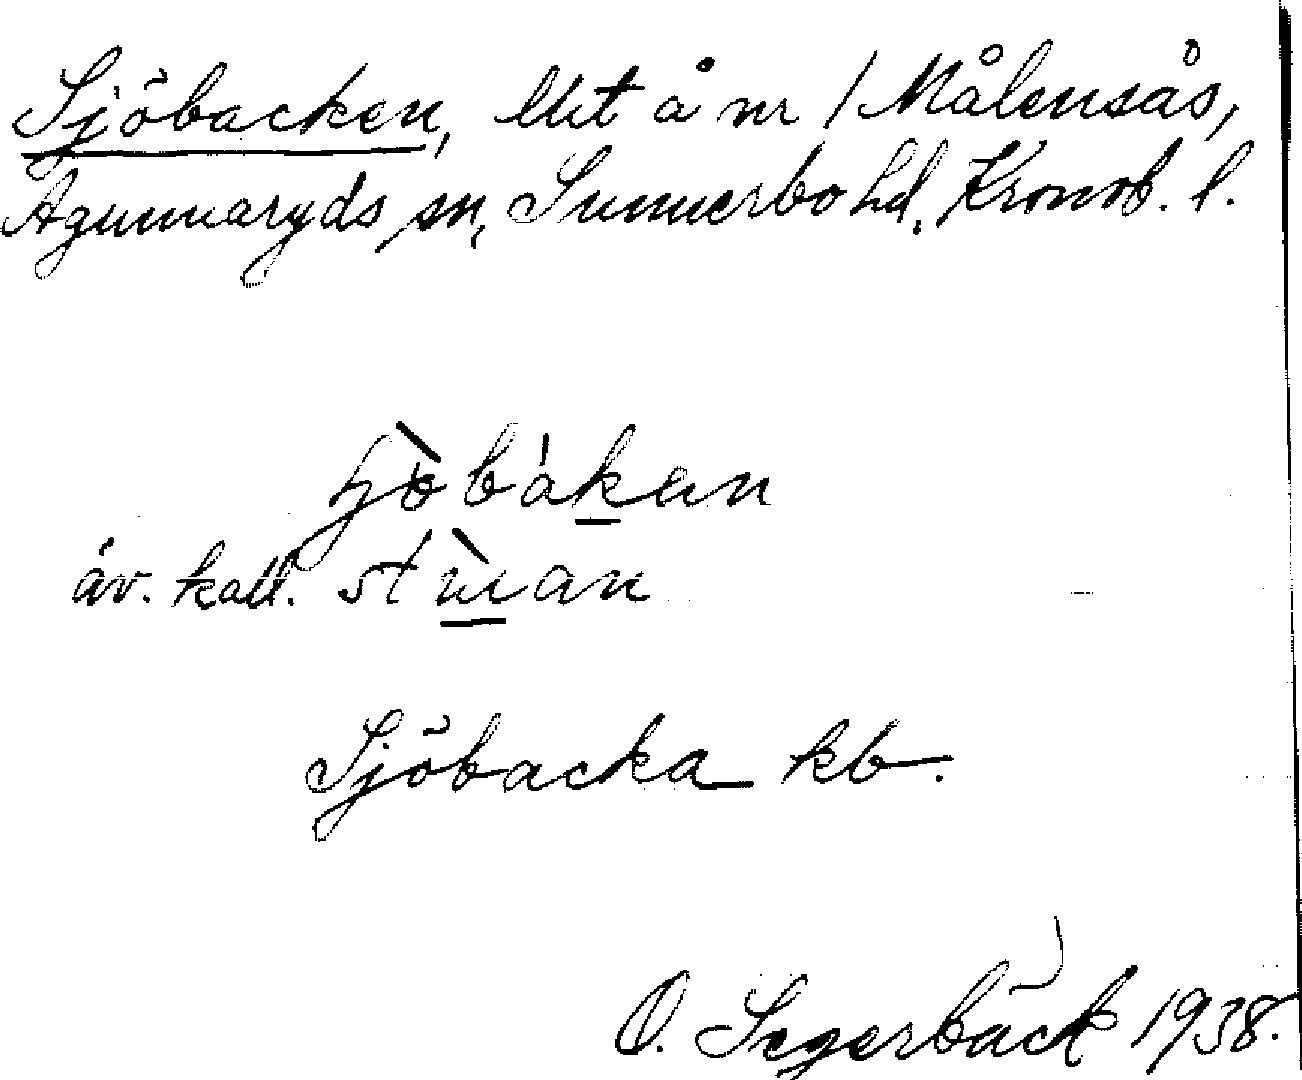 Sjöbacken, lht å nr 1 Målensås,
Agunnaryds sn, Sunnerbo hd, Kronob. l.
äv. kall.
Sjöbacka kb.
O. Segerbäck 1938.